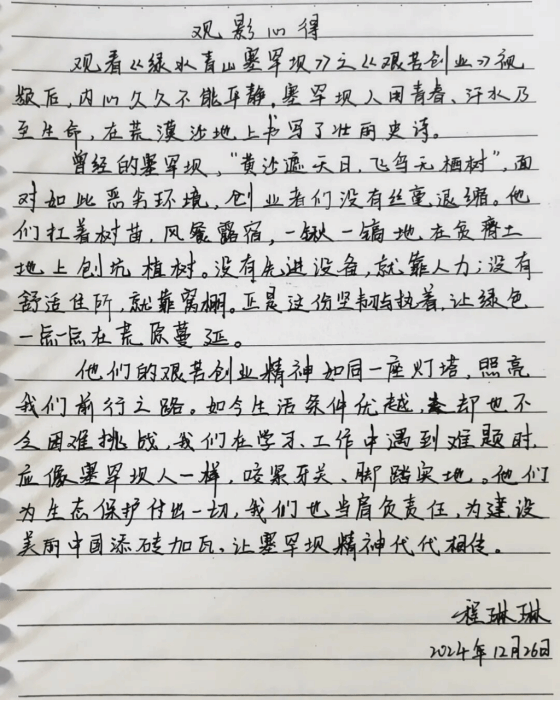 观影心得
观看《绿水青山塞罕坝》之《艰苦创业》视
频后，内心久久不能平静。塞罕坝人用青春、汗水乃
至生命，在荒漠沙地上书写了壮丽史诗。
曾经的塞罕坝，“黄沙遮天日，飞鸟无栖树”，面
对如此恶劣环境，创业者们没有丝毫退缩。他
们扛着树苗，风餐露宿，一锹一镐地在贫瘠土
地上刨坑植树。没有先进设备，就靠人力；没有
舒适住所，就靠窝棚。正是这份坚韧与执着，让绿色
一点一点在荒原蔓延。
他们的艰苦创业精神如同一座灯塔，照亮
我们前行之路。如今生活条件优越，却也不
乏困难挑战，我们在学习、工作中遇到难题时，
应像塞罕坝人一样，咬紧牙关、脚踏实地。他们
为生态保护付出一切，我们也当肩负责任，为建设
美丽中国添砖加瓦、让塞罕坝精神代代相传。
程琳琳
2024年12月26日